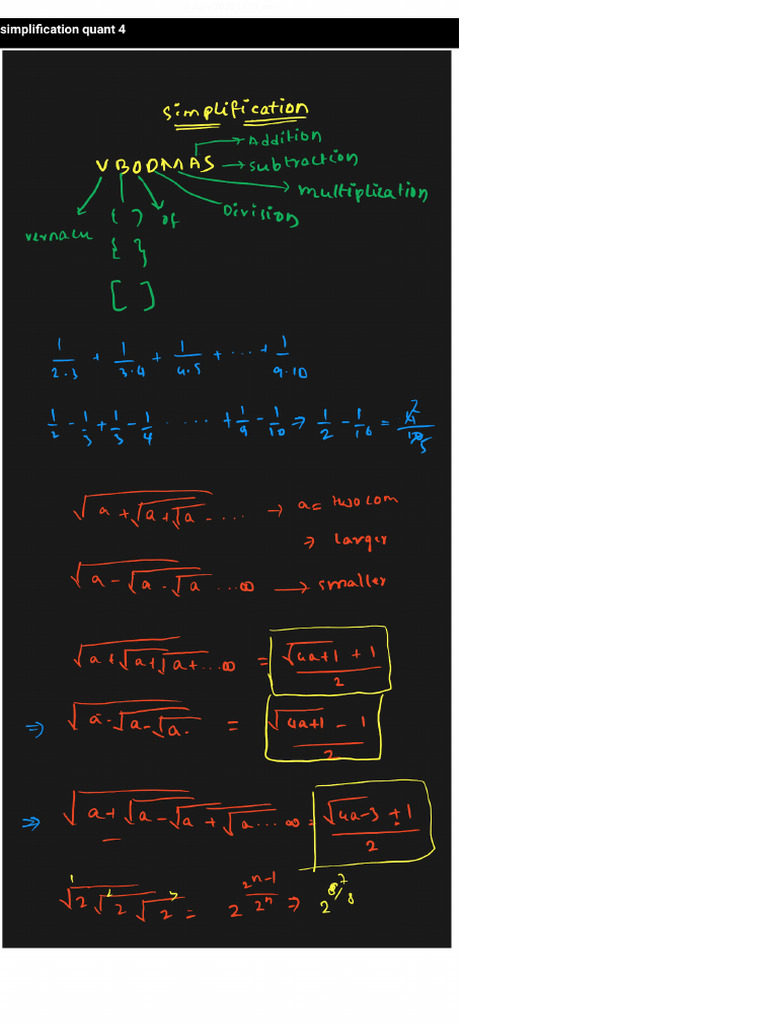 simplification quant 4
simplification
→ Addition
VBODMAS → subtraction
→ multiplication
Division
( ) of
{ }
[ ]
1/2·3 + 1/3·4 + 1/4·5 + ... + 1/9·10
1/2 - 1/3 + 1/3 - 1/4 ..... + 1/9 - 1/10 → 1/2 - 1/10 = 4/10 2/5
√a+√a+√a.... → a = two com
→ larger
√a-√a-√a ...∞ → smaller
√a+√a+√a+...∞ = (√4a+1 + 1)/2
⇒ √a-√a-√a. = (√4a+1 - 1)/2
⇒ √a+√a-√a+√a...∞ = (√4a-3 + 1)/2
√2√2√2 = 2^((2^n-1)/2^n) ⇒ 2^(7/8)